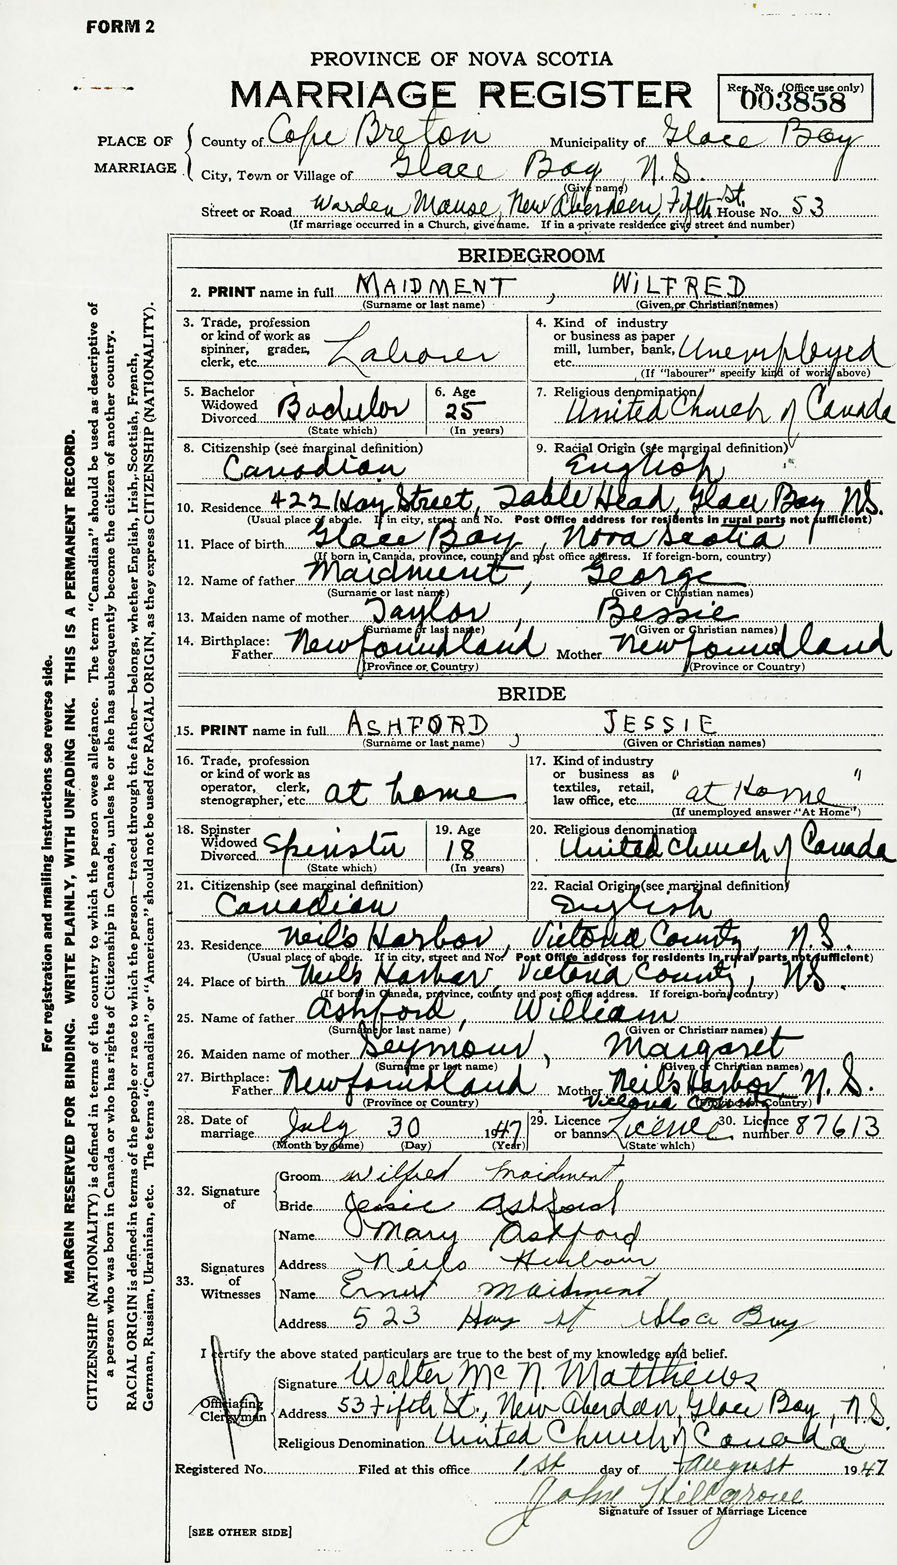 FORM 2
PROVINCE OF NOVA SCOTIA
MARRIAGE REGISTER
Reg. No. (Office use only)
003858
PLACE OF MARRIAGE
County of Cape Breton Municipality of Glace Bay
City, Town or Village of Glace Bay, N.S.
(Give name)
Street or Road Warden Manse, New Aberdeen, Fifth St. House No. 53
(If marriage occurred in a Church, give name. If in a private residence give street and number)
BRIDEGROOM
2. PRINT name in full MAIDMENT, WILFRED
(Surname or last name) (Given or Christian names)
3. Trade, profession or kind of work as spinner, grader, clerk, etc. Laborer
4. Kind of industry or business as paper mill, lumber, bank, etc. Unemployed
(If "labourer" specify kind of work above)
5. Bachelor Widowed Divorced Bachelor
(State which)
6. Age 25
(In years)
7. Religious denomination United Church of Canada
8. Citizenship (see marginal definition) Canadian
9. Racial Origin (see marginal definition) English
10. Residence 422 Hay Street, Table Head, Glace Bay NS.
(Usual place of abode. If in city, street and No. Post Office address for residents in rural parts not sufficient)
11. Place of birth Glace Bay, Nova Scotia
(If born in Canada, province, county and post office address. If foreign-born, country)
12. Name of father Maidment, George
(Surname or last name) (Given or Christian names)
13. Maiden name of mother Taylor, Bessie
(Surname or last name) (Given or Christian names)
14. Birthplace: Father Newfoundland Mother Newfoundland
(Province or Country) (Province or Country)
BRIDE
15. PRINT name in full ASHFORD, JESSIE
(Surname or last name) (Given or Christian names)
16. Trade, profession or kind of work as operator, clerk, stenographer, etc. at home
17. Kind of industry or business as textiles, retail, law office, etc. "at Home"
(If unemployed answer "At Home")
18. Spinster Widowed Divorced Spinster
(State which)
19. Age 18
(In years)
20. Religious denomination United Church of Canada
21. Citizenship (see marginal definition) Canadian
22. Racial Origin (see marginal definition) English
23. Residence Neil's Harbor, Victoria County, N.S.
(Usual place of abode. If in city, street and No. Post Office address for residents in rural parts not sufficient)
24. Place of birth Neil's Harbor, Victoria County, NS.
(If born in Canada, province, county and post office address. If foreign-born, country)
25. Name of father Ashford, William
(Surname or last name) (Given or Christian names)
26. Maiden name of mother Seymour, Margaret
(Surname or last name) (Given or Christian names)
27. Birthplace: Father Newfoundland Mother Neil's Harbor, N.S.
Victoria County
(Province or Country) (Province or Country)
28. Date of marriage July 30 1947
(Month by name) (Day) (Year)
29. Licence or banns Licence
(State which)
30. Licence number 87613
32. Signature of
Groom Wilfred Maidment
Bride Jessie Ashford
33. Signatures of Witnesses
Name Mary Ashford
Address Neils Harbour
Name Ernest Maidment
Address 523 Hay st Glace Bay
I certify the above stated particulars are true to the best of my knowledge and belief.
Officiating Clergyman
Signature Walter McN Matthews
Address 53 Fifth St., New Aberdeen, Glace Bay, N.S.
Religious Denomination United Church of Canada
Registered No. Filed at this office 1st day of August 1947
John
Signature of Issuer of Marriage Licence
[SEE OTHER SIDE]
For registration and mailing instructions see reverse side.
MARGIN RESERVED FOR BINDING. WRITE PLAINLY, WITH UNFADING INK. THIS IS A PERMANENT RECORD.
CITIZENSHIP (NATIONALITY) is defined in terms of the country to which the person owes allegiance. The term "Canadian" should be used as descriptive of
a person who was born in Canada or who has rights of Citizenship in Canada, unless he or she has subsequently become the citizen of another country.
RACIAL ORIGIN is defined in terms of the people or race to which the person—traced through the father—belongs, whether English, Irish, Scottish, French,
German, Russian, Ukrainian, etc. The terms "Canadian" or "American" should not be used for RACIAL ORIGIN, as they express CITIZENSHIP (NATIONALITY).